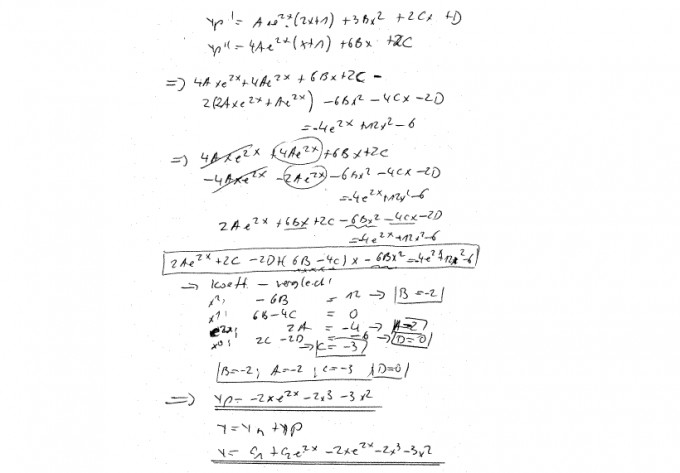 yp' = Ae^2x (2x+1) + 3Bx² + 2Cx + D
yp'' = 4Ae^2x (x+1) + 6Bx + 2C
=) 4Axe^2x + 4Ae^2x + 6Bx + 2C -
2(2Axe^2x + Ae^2x) - 6Bx² - 4Cx - 2D
= -4e^2x + 12x² - 6
=) 4Axe^2x + 4Ae^2x + 6Bx + 2C
- 4Axe^2x - 2Ae^2x - 6Bx² - 4Cx - 2D
= -4e^2x + 12x² - 6
2Ae^2x + 6Bx + 2C - 6Bx² - 4Cx - 2D
= -4e^2x + 12x² - 6
2Ae^2x + 2C - 2D + (6B - 4C) x - 6Bx² = -4e^2x + 12x² - 6
→ Koeff. - vergleich:
x²: - 6B = 12 → B = -2
x1: 6B - 4C = 0
e2x: 2A = -4 → A = -2
x0: 2C - 2D = -6 → C = -3 → D = 0
B = -2; A = -2; C = -3; D = 0
=) yp = -2xe^2x - 2x³ - 3x²
y = yh + yp
y = C1 + C2e^2x - 2xe^2x - 2x³ - 3x²